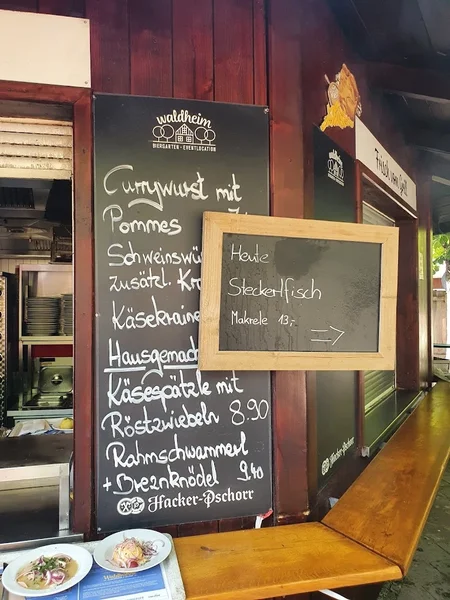 waldheim
BIERGARTEN · EVENTLOCATION
Currywurst mit
Pommes
Schweinswü
zusätzl. Kr
Käsekraine
Hausgemach
Käsespätzle mit
Röstzwiebeln 8.90
Rahmschwammerl
+ Breznknödel 9.40
Hacker-Pschorr
Heute
Steckerlfisch
Makrele 13,-
waldheim
Frisch vom Grill
Hacker-Pschorr